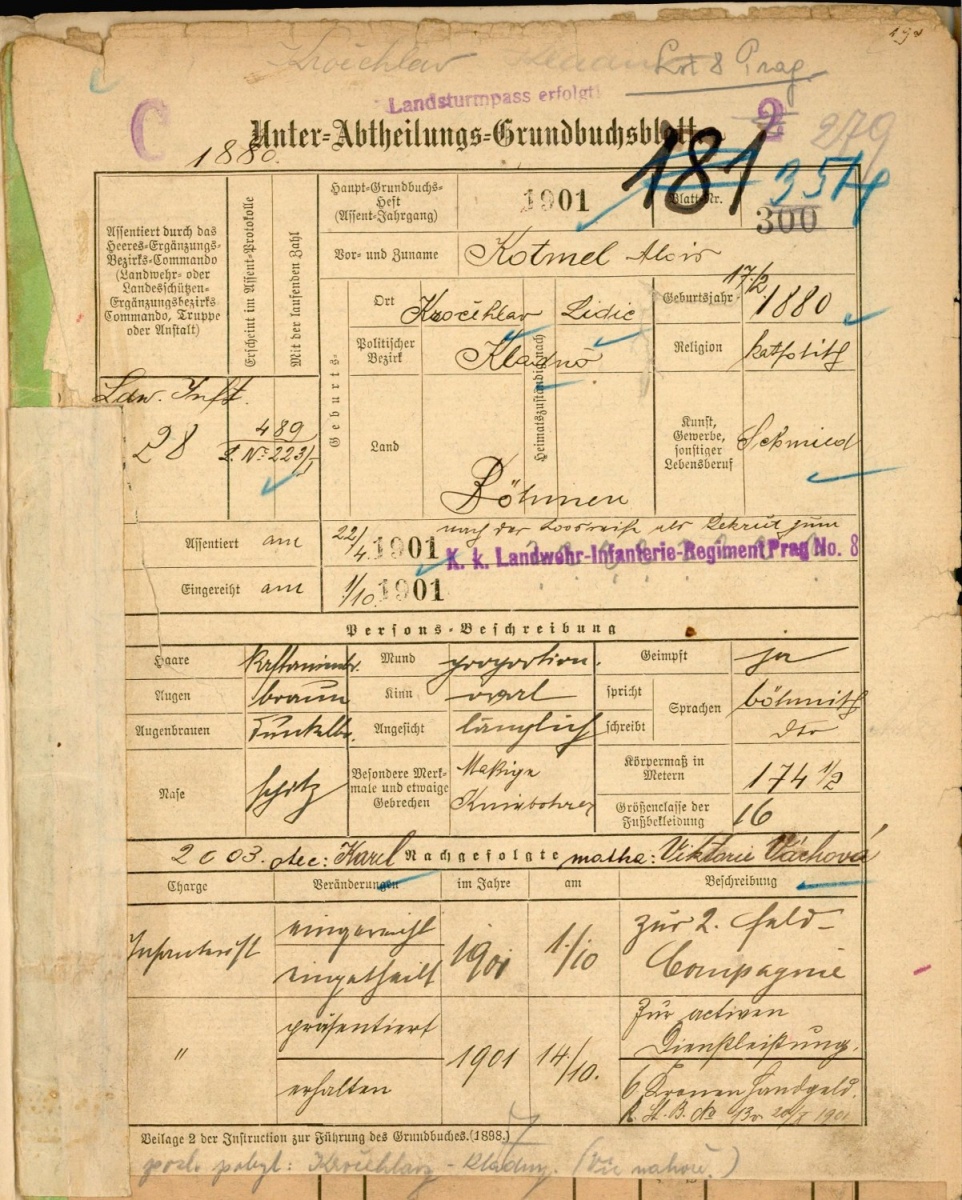 192
Kročehlav Kladno Lst 8 Prag.
Landsturmpass erfolgt!
C
2
Unter-Abtheilungs-Grundbuchsblatt
279
1880.
181
351
Assentiert durch das Heeres-Ergänzungs-Bezirks-Commando (Landwehr- oder Landesschützen-Ergänzungsbezirks Commando, Truppe oder Anstalt)
Erscheint im Assent-Protokolle
Mit der laufenden Zahl
Haupt-Grundbuchs-Heft (Assent-Jahrgang)
1901
Blatt-Nr.
300
Vor- und Zuname
Kotmel Alois
Geburts-
Ort
Kročehlav
Heimatszuständig nach
Lidic
Geburtsjahr
17./2
1880
Politischer Bezirk
Kladno
Religion
katholisch
Ldw. Inft.
28
489
L. No 223/1
Land
Böhmen
Kunst, Gewerbe, sonstiger Lebensberuf
Schmied
Assentiert am
22/4 1901
nach der Losreihe als Rekrut zum
K. k. Landwehr-Infanterie-Regiment Prag No. 8
Eingereiht am
1/10 1901
Persons-Beschreibung
Haare
Mund
proportion.
Geimpft
ja
Augen
braun
Kinn
oval
spricht
Sprachen
böhmisch
Augenbrauen
dunkelbr.
Angesicht
länglich
schreibt
dto
Nase
spitz
Besondere Merkmale und etwaige Gebrechen
Körpermaß in Metern
174 1/2
Größenclasse der Fußbekleidung
16
2003. otec: Karl Nachgefolgte matka: Viktorie Váchová
Charge
Veränderungen
im Jahre
am
Beschreibung
Infanterist
eingereiht
eingetheilt
1901
1./10
zur 2. Feld-
Compagnie
"
präsentiert
erhalten
1901
14/10.
Zur activen
Dienstleistung.
6 Kronen Handgeld.
Beilage 2 der Instruction zur Führung des Grundbuches. (1898.)